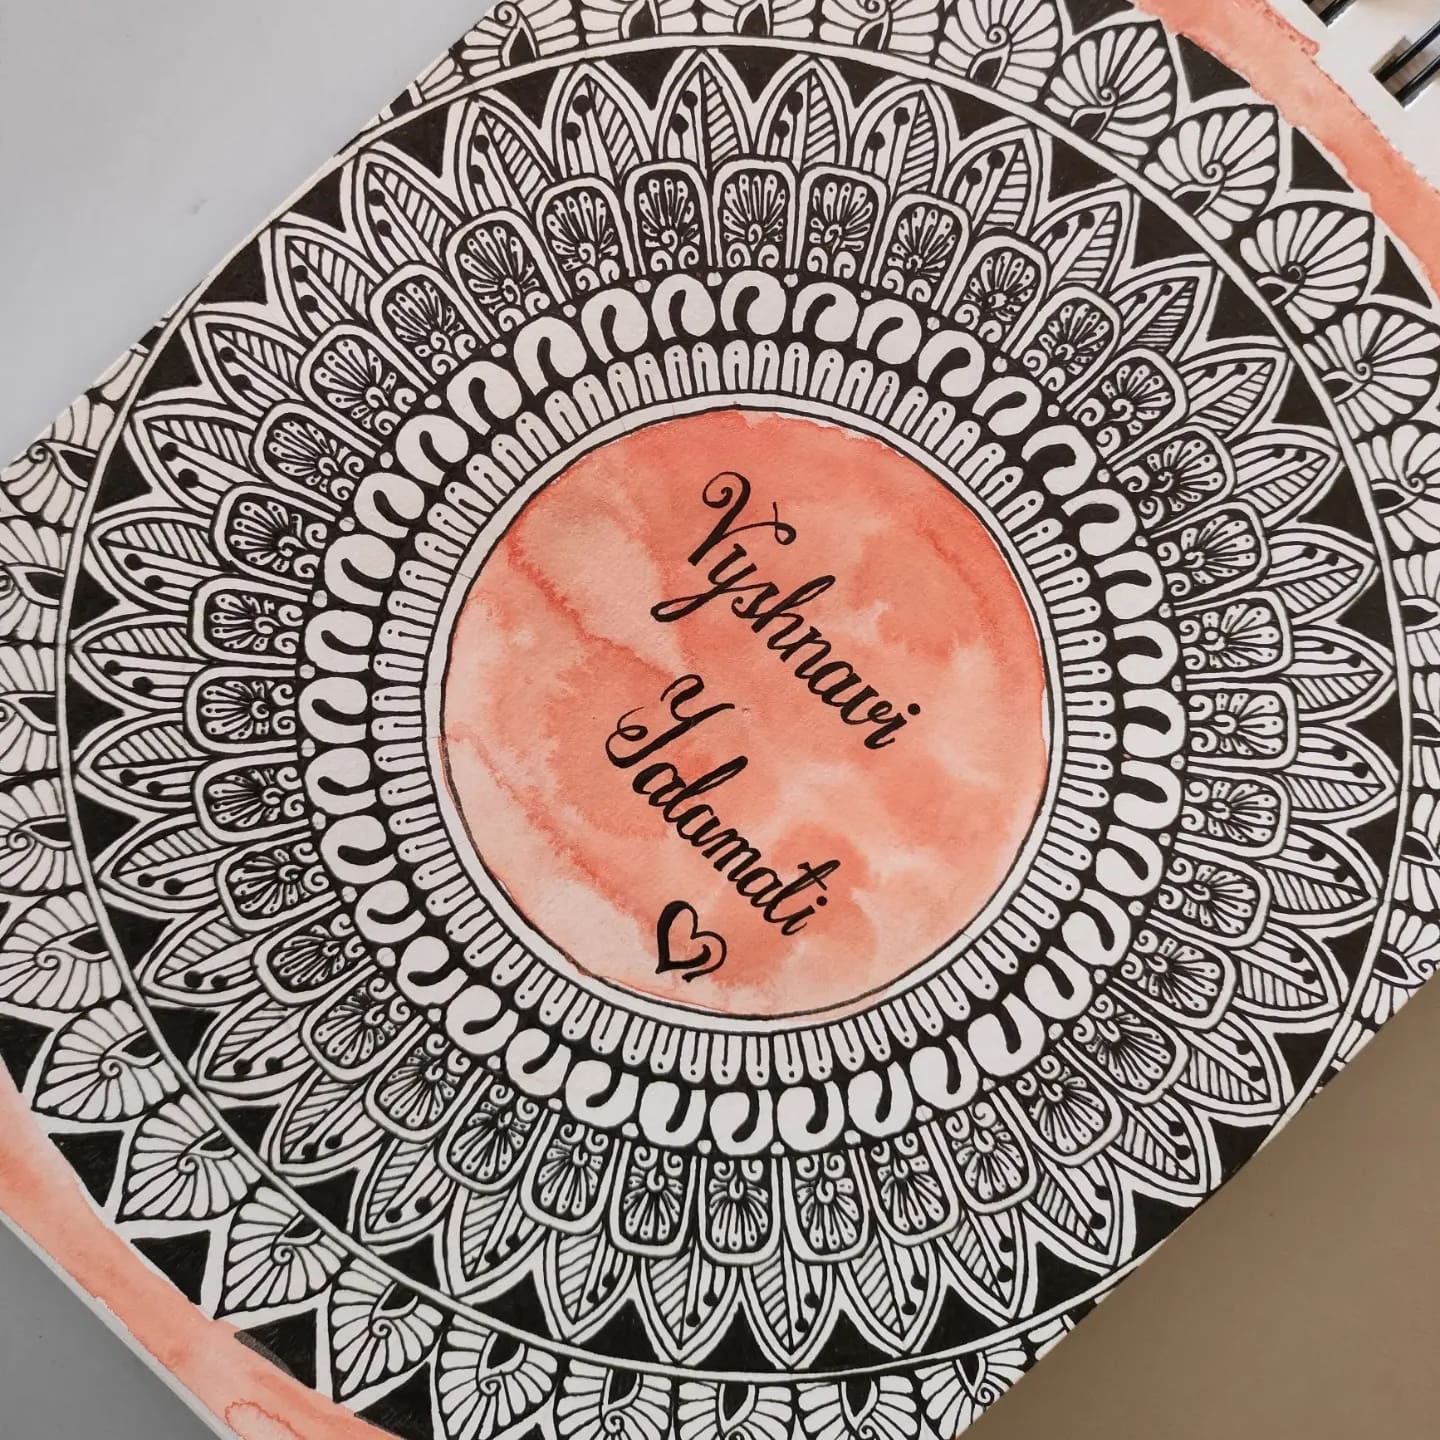 Vyshnavi
Yalamati